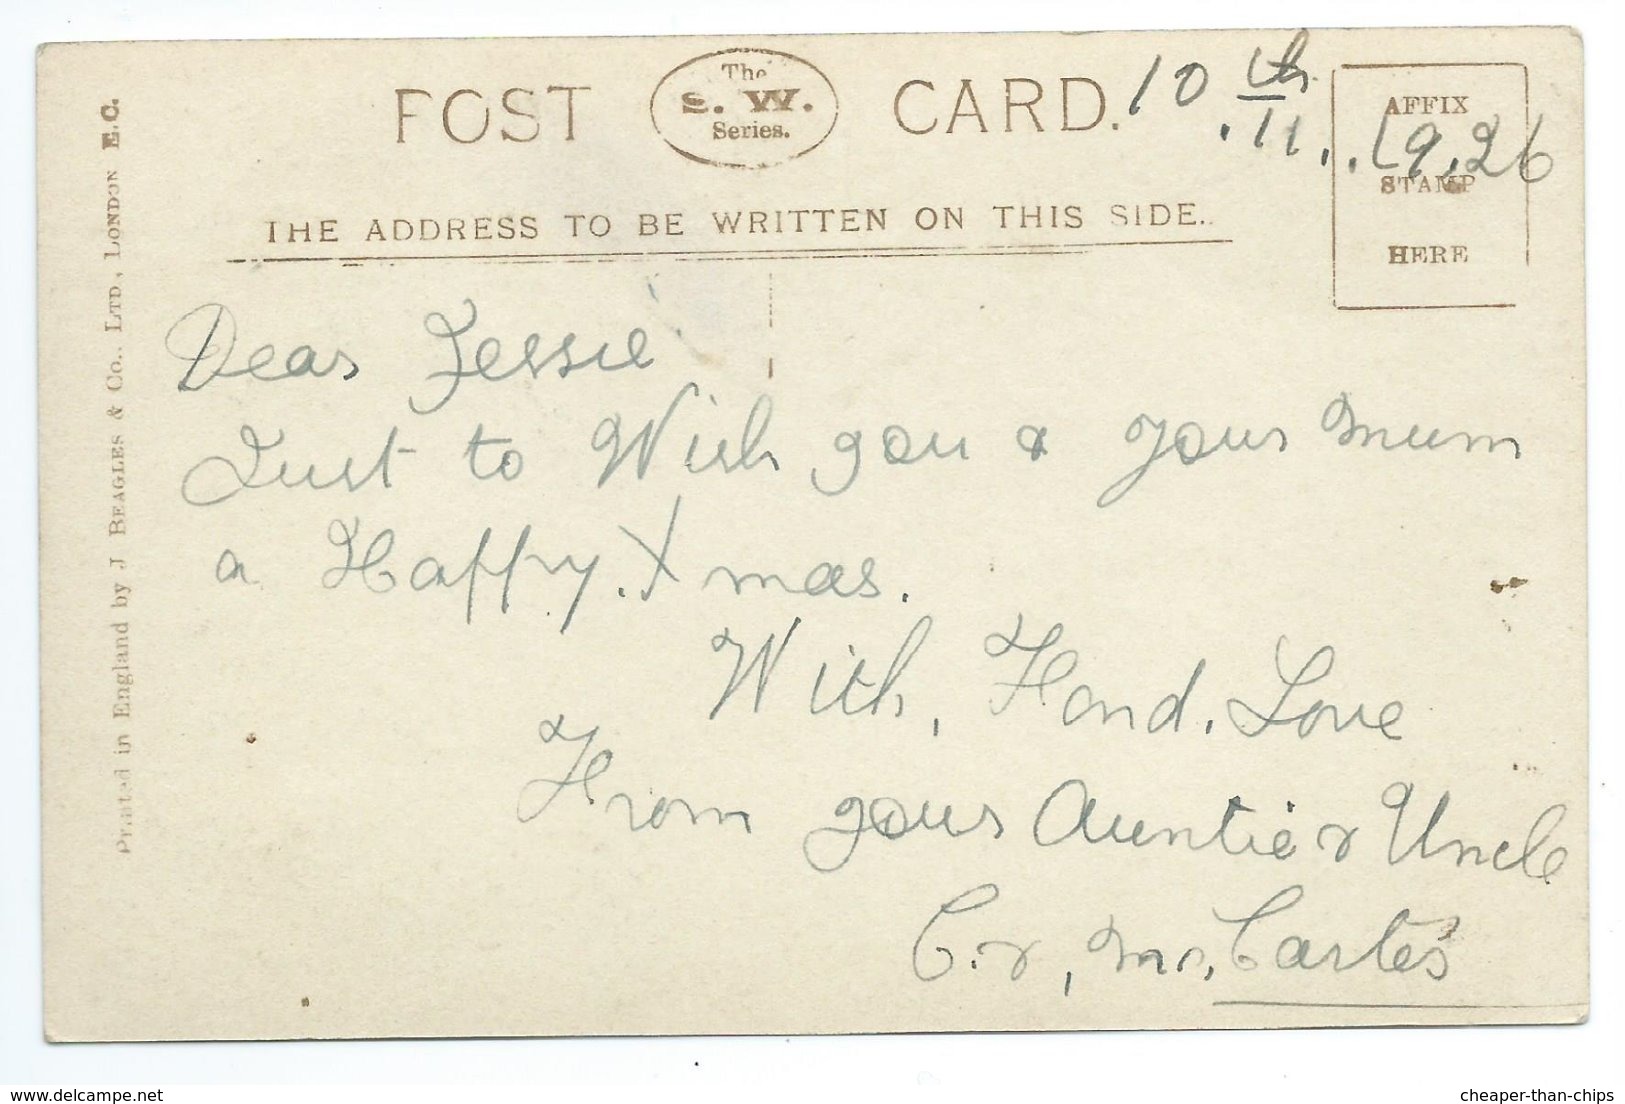 POST CARD.
The
S. W.
Series.
10th
.11..19.26
AFFIX
STAMP
HERE
THE ADDRESS TO BE WRITTEN ON THIS SIDE.
Printed in England by J Beagles & Co., Ltd., London E.C.
Dear Jessie
Just to Wish you & your Mum
a Happy. Xmas.
With, Fond. Love
From your Auntie & Uncle
C. &, Carter
delcampe.net
cheaper-than-chips